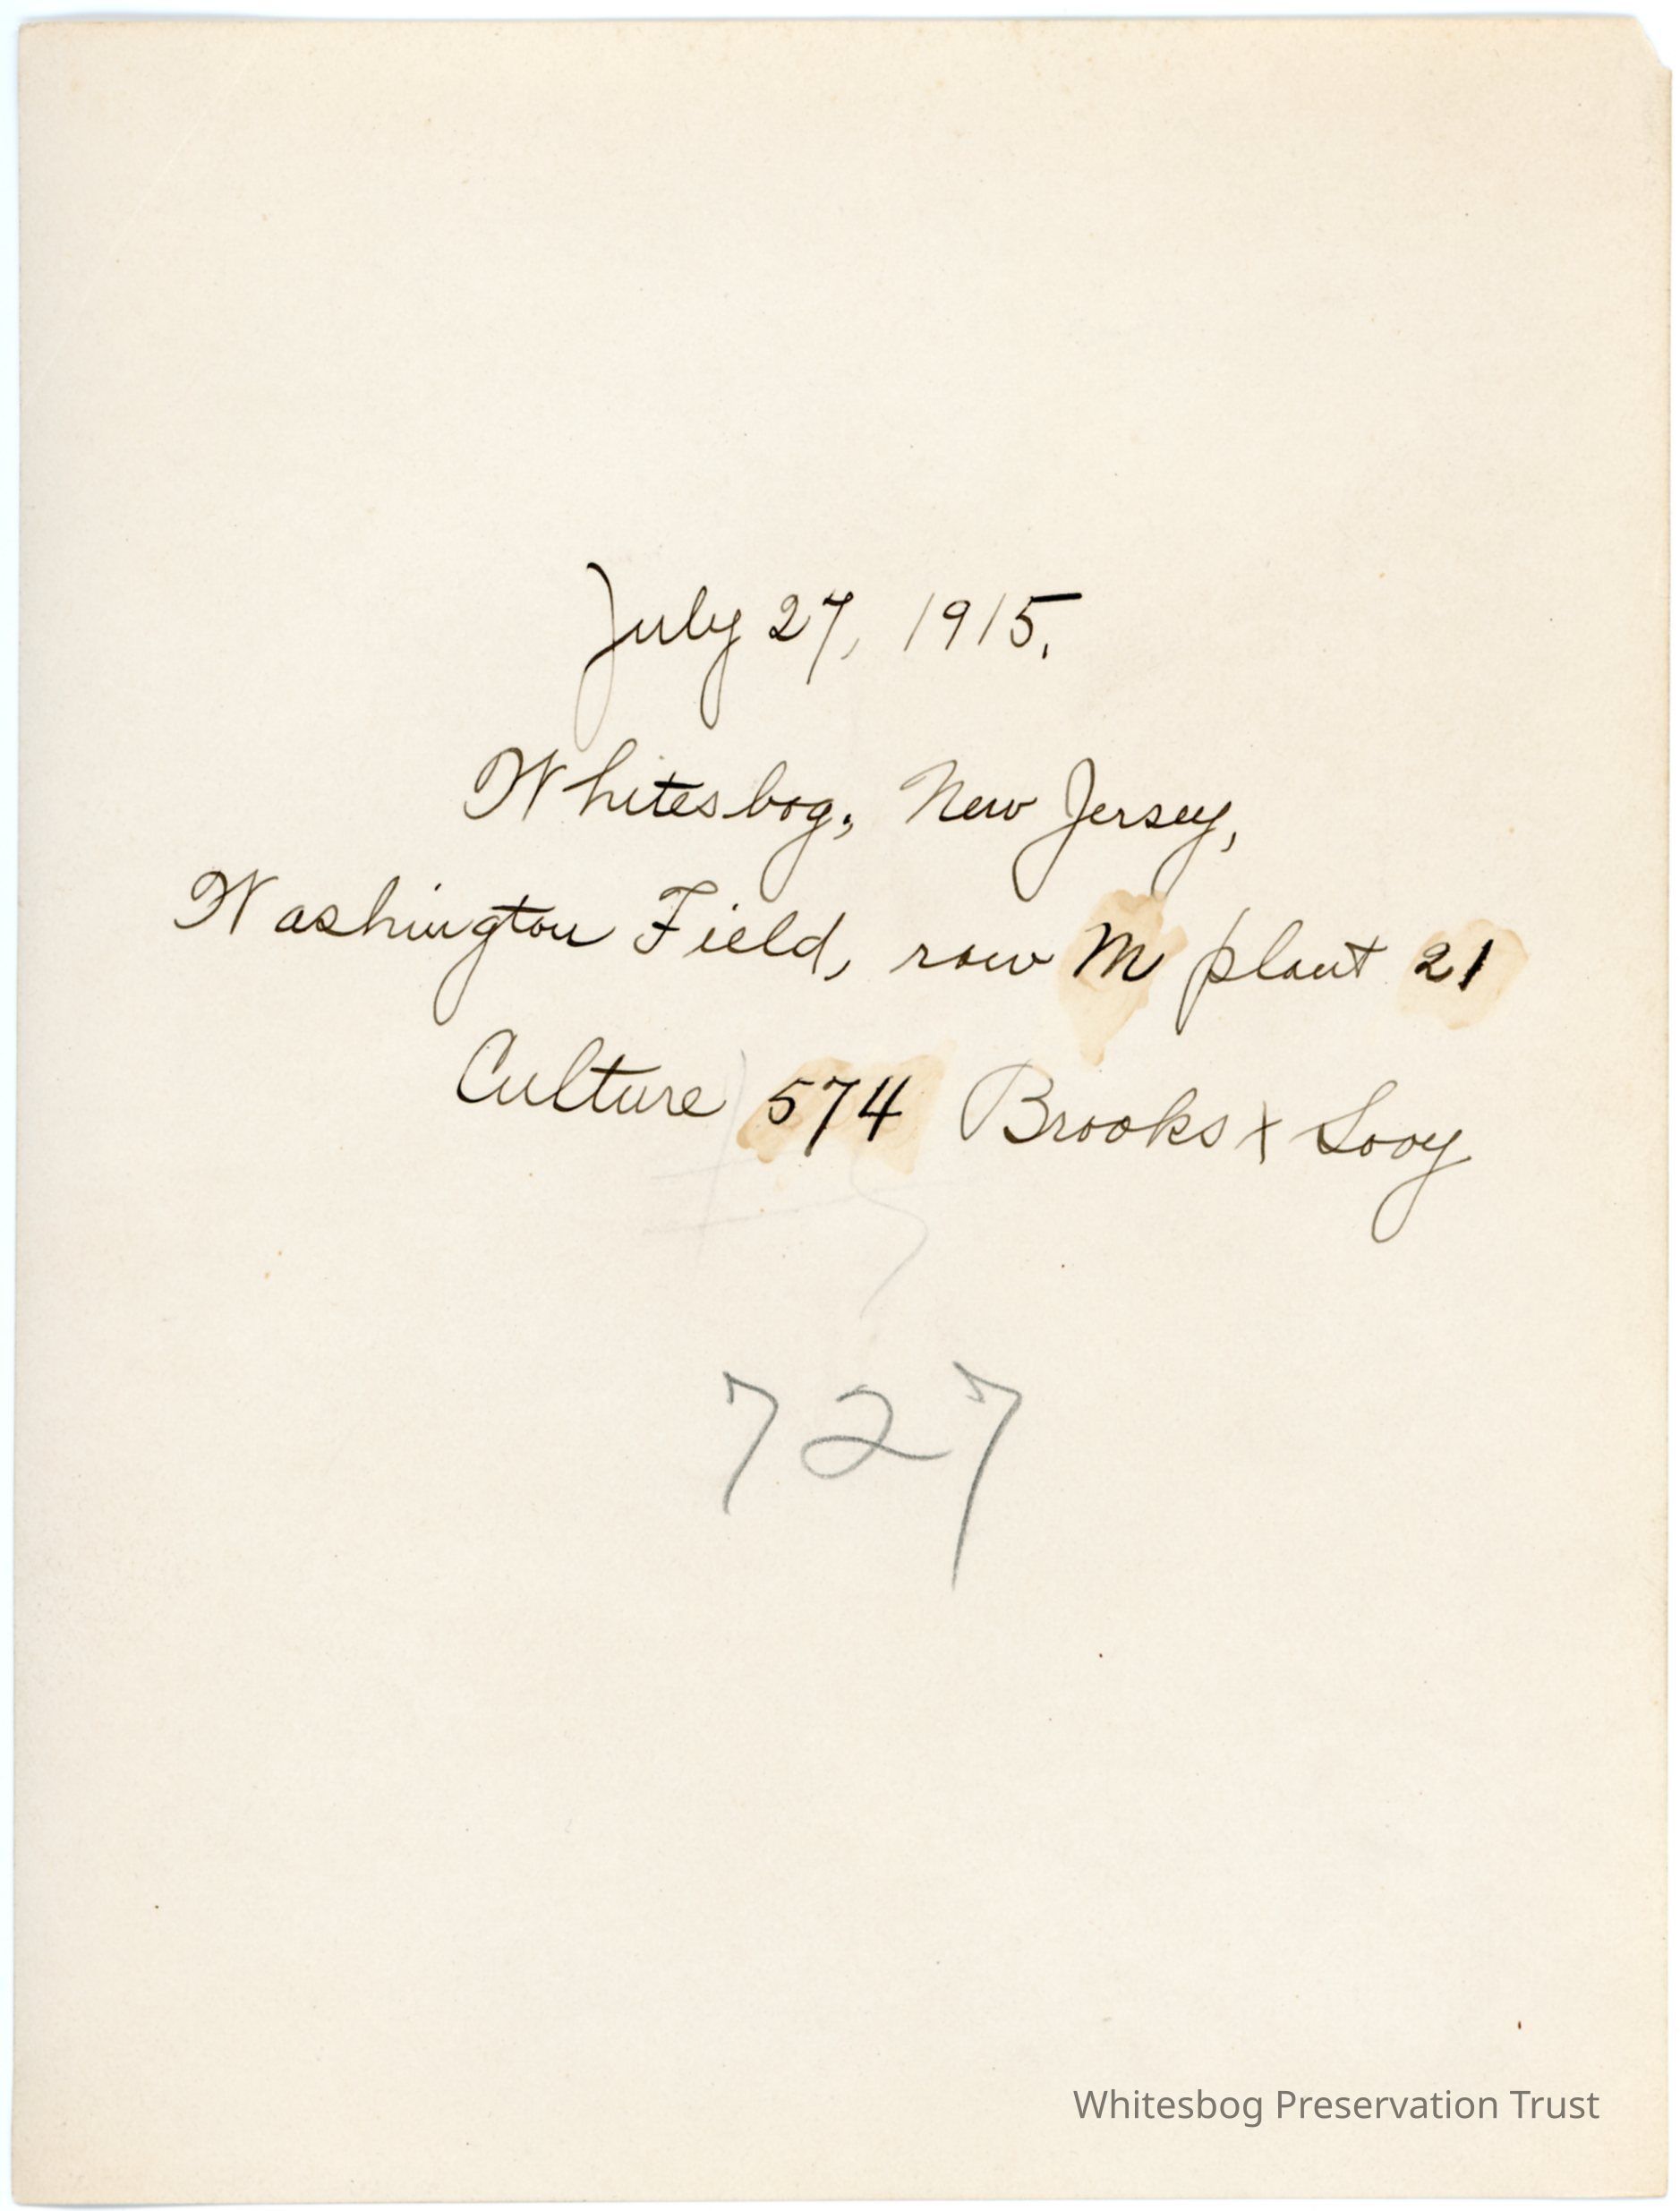 July 27, 1915.
Whitesbog, New Jersey,
Washington Field, row M plant 21
Culture 574 Brooks x Sooy
727
Whitesbog Preservation Trust